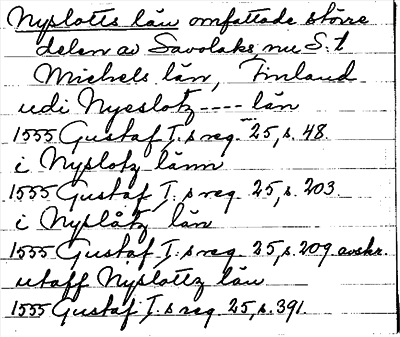 Nyslotts län omfattade större
delen av Savolaks nu S:t
Michels län, Finland
udi Nyesslotz ---- län
1555 Gustaf I:s reg. 25, s. 48.
i Nyslotz länn
1555 Gustaf I:s reg. 25, s. 203.
i Nyslåtz län
1555 Gustaf I:s reg. 25, s. 209 avskr.
utaff Nyslottz län
1555 Gustaf I:s reg. 25, s. 391.